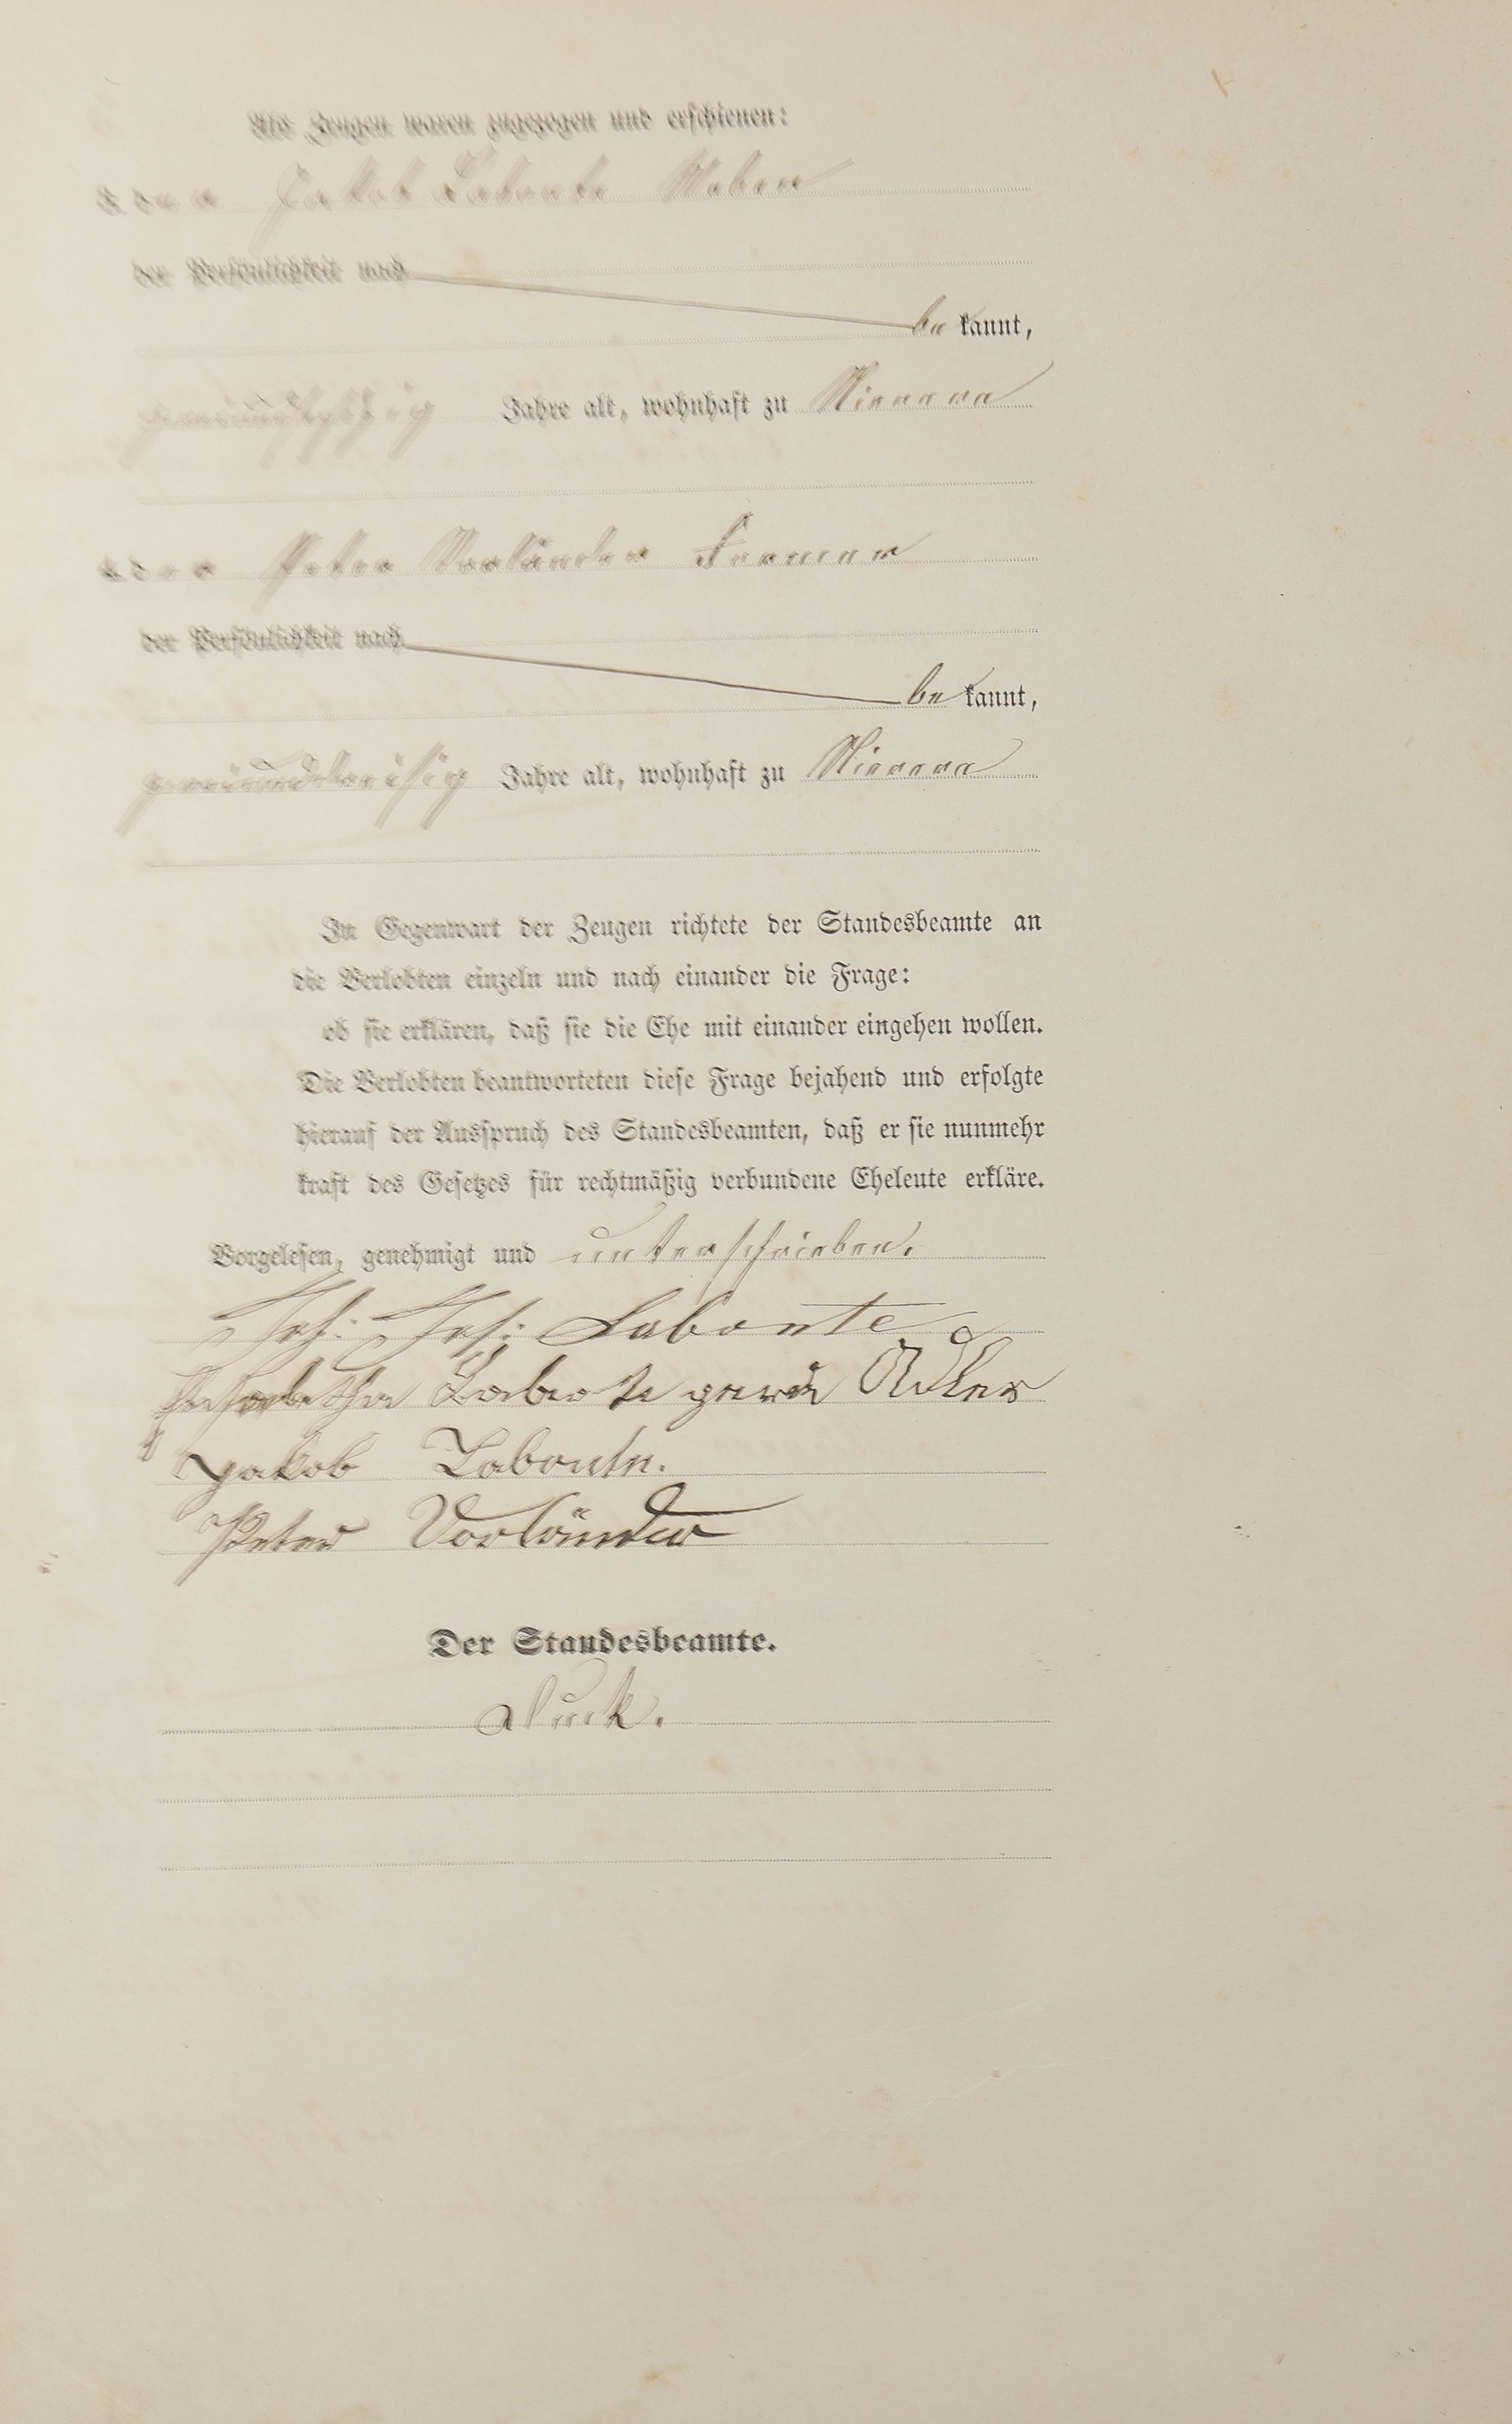 Als Zeugen waren zugezogen und erschienen:
der Jakob Labonte Weber
der Persönlichkeit nach
be kannt,
Jahre alt, wohnhaft zu
der Peter Vorländer Former
der Persönlichkeit nach
be kannt,
zweiunddreißig Jahre alt, wohnhaft zu
In Gegenwart der Zeugen richtete der Standesbeamte an
die Verlobten einzeln und nach einander die Frage:
ob sie erklären, daß sie die Ehe mit einander eingehen wollen.
Die Verlobten beantworteten diese Frage bejahend und erfolgte
hierauf der Ausspruch des Standesbeamten, daß er sie nunmehr
kraft des Gesetzes für rechtmäßig verbundene Eheleute erkläre.
Vorgelesen, genehmigt und unterschrieben.
Labonte
Adler
Jakob Labonte.
Peter Vorländer
Der Standesbeamte.